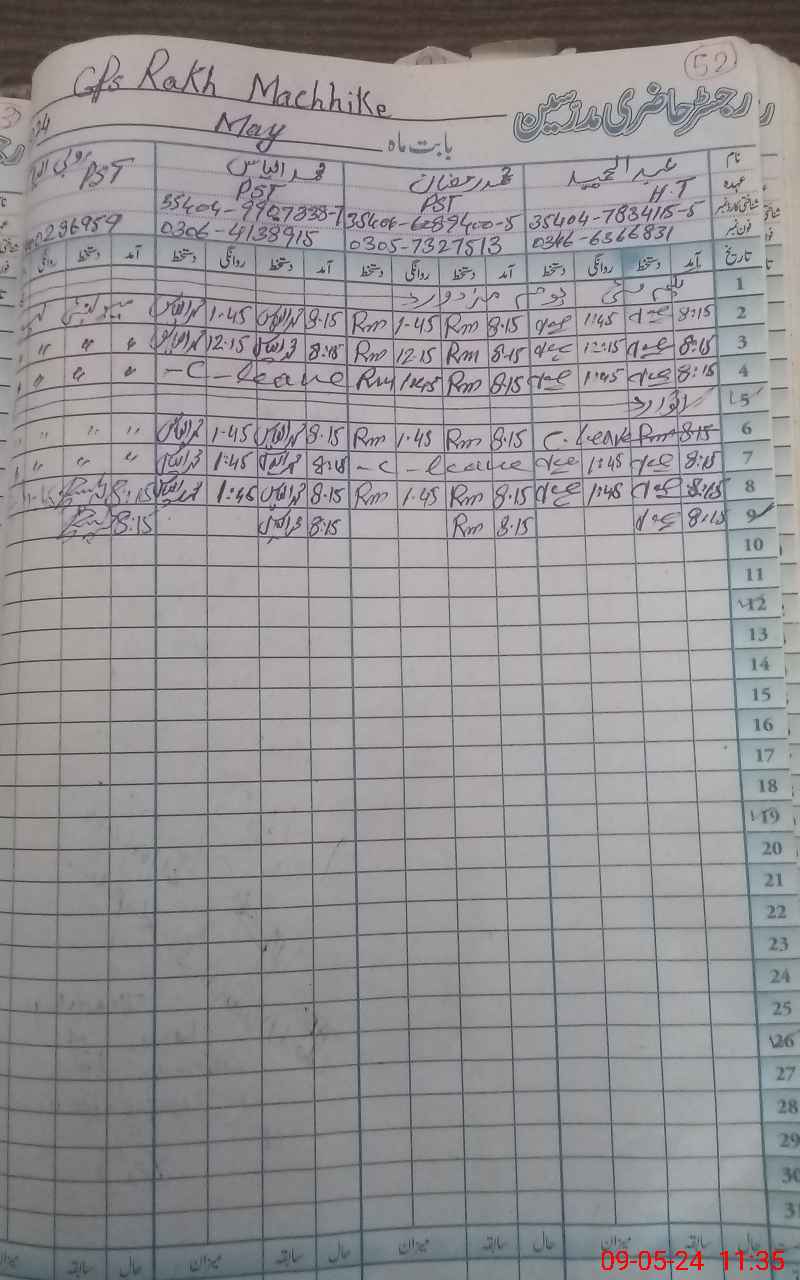 52
GPS Rakh Machhike
رجسٹر حاضری مدرسین
بابت ماہ May
نام عبد الحمید محمد رمضان محمد الیاس
عہدہ H.T PST PST PST
شناختی کارڈ نمبر 35404-783415-5 35406-6089400-5 35404-9927338-7
فون نمبر 0346-6366831 0305-7327513 0306-4138915 0296959
تاریخ آمد دستخط روانگی دستخط آمد دستخط روانگی دستخط آمد دستخط روانگی دستخط آمد دستخط روانگی
1 یکم مئی یوم مزدور
2 8:15 1:45 8:15 Rm 1.45 Rm 8.15 محمد الیاس 1.45 محمد الیاس
3 8:15 12:15 8.15 Rm 12.15 Rm 8:15 محمد الیاس 12.15 محمد الیاس " " "
4 8:15 1:45 8.15 Rm 1:45 Rm -C-leave " " "
5 اتوار
6 8:15 Rm C.leave 8.15 Rm 1.45 Rm 8.15 محمد الیاس 1.45 محمد الیاس " " "
7 8:15 1:45 -C-leave 8:15 محمد الیاس 1:45 محمد الیاس " " "
8 8:15 1:45 8.15 Rm 1.45 Rm 8.15 محمد الیاس 1:45 محمد الیاس 8:15
9 8:15 8.15 Rm 8.15 محمد الیاس 8:15
10
11
12
13
14
15
16
17
18
19
20
21
22
23
24
25
26
27
28
29
30
31
حال سابقہ میزان حال سابقہ میزان حال سابقہ میزان حال سابقہ میزان
09-05-24 11:35